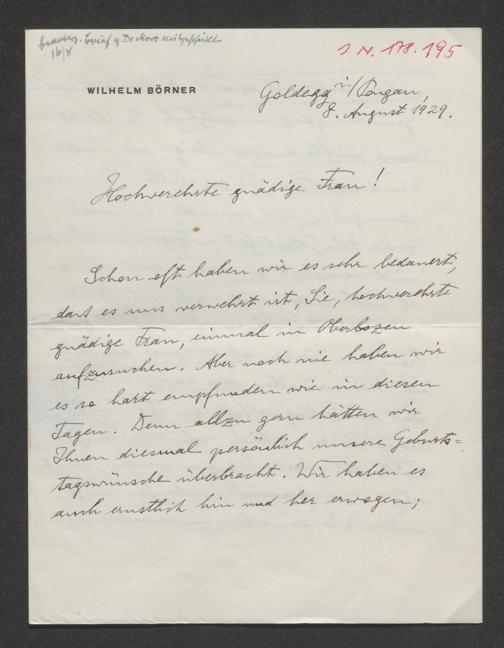 beantw. Brief v. Dr Moro mitgeschickt
16/8
I N. 178.195
WILHELM BÖRNER
Goldegg i/Pongau,
8. August 1929.
Hochverehrte gnädige Frau!
Schon oft haben wir es sehr bedauert,
dass es uns verwehrt ist, Sie, hochverehrte
gnädige Frau, einmal in Oberbozen
aufzusuchen. Aber noch nie haben wir
es so hart empfunden wie in diesen
Tagen. Denn allzu gern hätten wir
Ihnen diesmal persönlich unsere Geburts-
tagswünsche überbracht. Wir haben es
auch ernstlich hin und her erwogen;